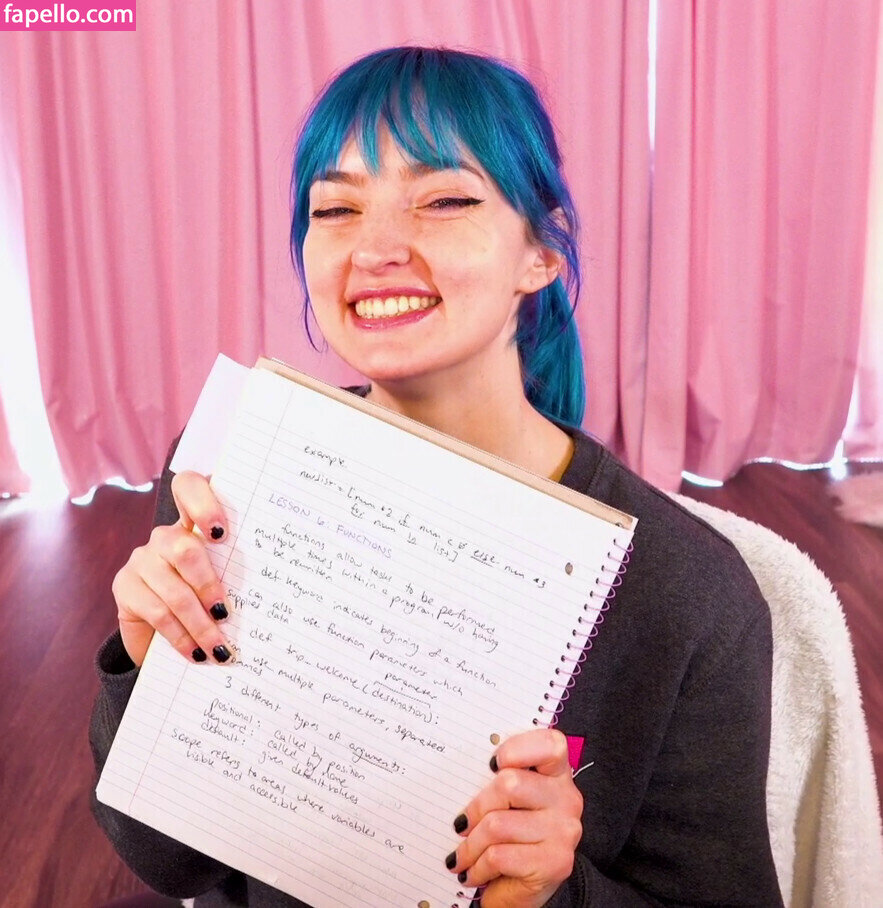 fapello.com
example
newlist = [num *2 if num < 5 else num *3
for num in list]
LESSON 6: FUNCTIONS
functions allow tasks to be performed
multiple times within a program w/o having
to be rewritten
def keyword indicates beginning of a function
can also use function parameters which
supplies data
parameter
def trip_welcome(destination):
can use multiple parameters, separated
commas
3 different types of arguments:
positional: called by position
keyword: called by name
default: given default values
scope refers to areas where variables are
visible and accessible